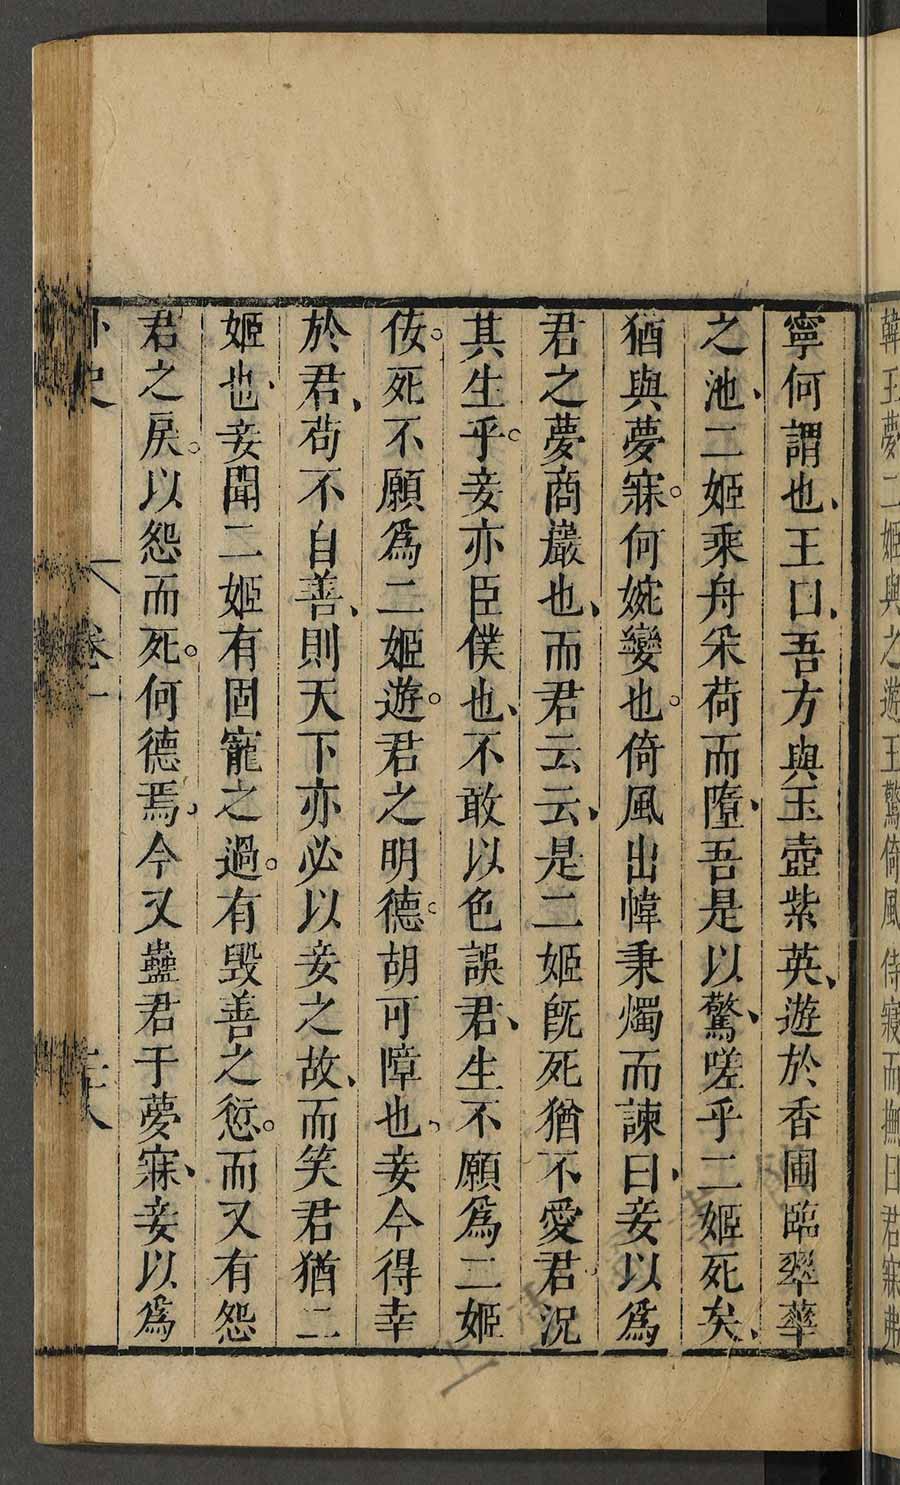 韓王夢二姬與之遊王驚倚風侍寢而撫曰君寐弗
寧何謂也王曰吾方與玉壺紫英遊於香圃臨翠華
之池二姬乘舟采荷而墮吾是以驚嗟乎二姬死矣
猶與夢寐何婉孌也倚風出幃秉燭而諫曰妾以爲
君之夢商巖也而君云云是二姬既死猶不愛君況
其生乎妾亦臣僕也不敢以色誤君生不願爲二姬
佞死不願爲二姬遊君之明德胡可障也妾今得幸
於君苟不自善則天下亦必以妾之故而笑君猶二
姬也妾聞二姬有固寵之過有毀善之愆而又有怨
君之戾以怨而死何德焉今又蠱君于夢寐妾以爲
卷一